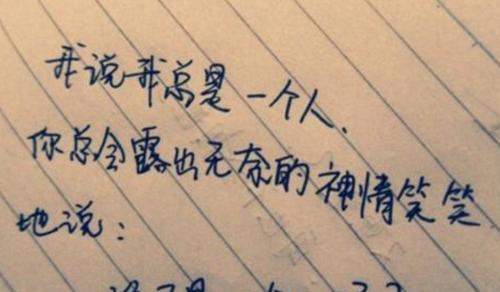 我说我总是一个人、
你总会露出无奈的神情笑笑
地说：